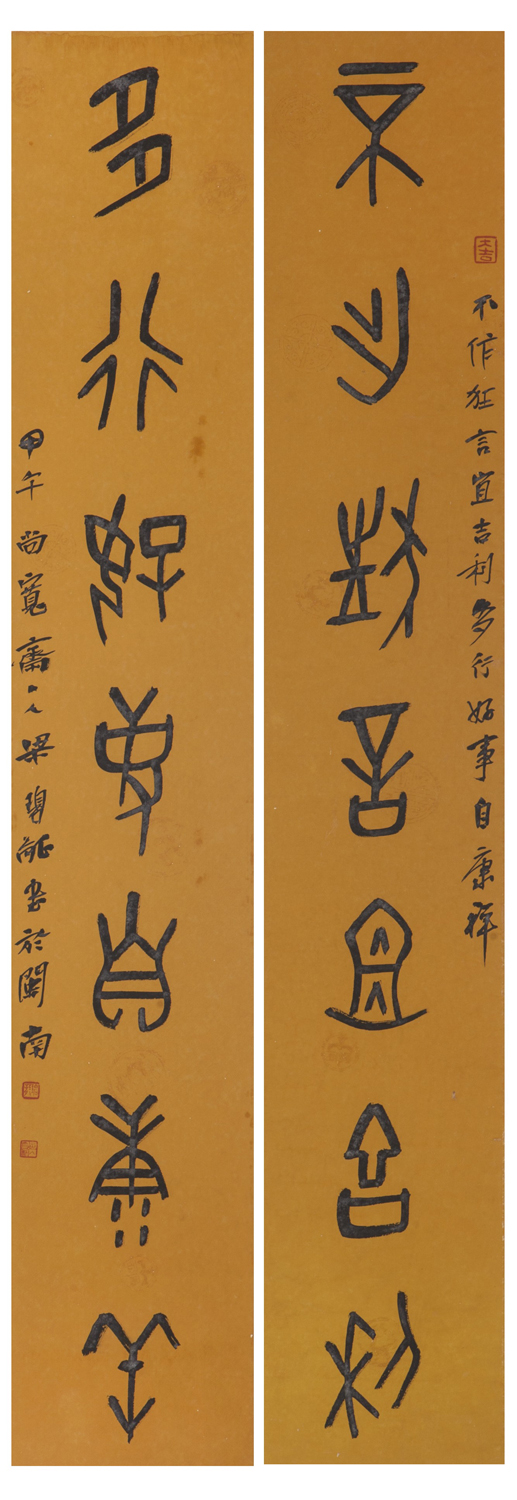 大吉
不作狂言宜吉利多行好事自康祥
不作狂言宜吉利
多行好事自康祥
甲午尚寬齋主人梁書於閩南